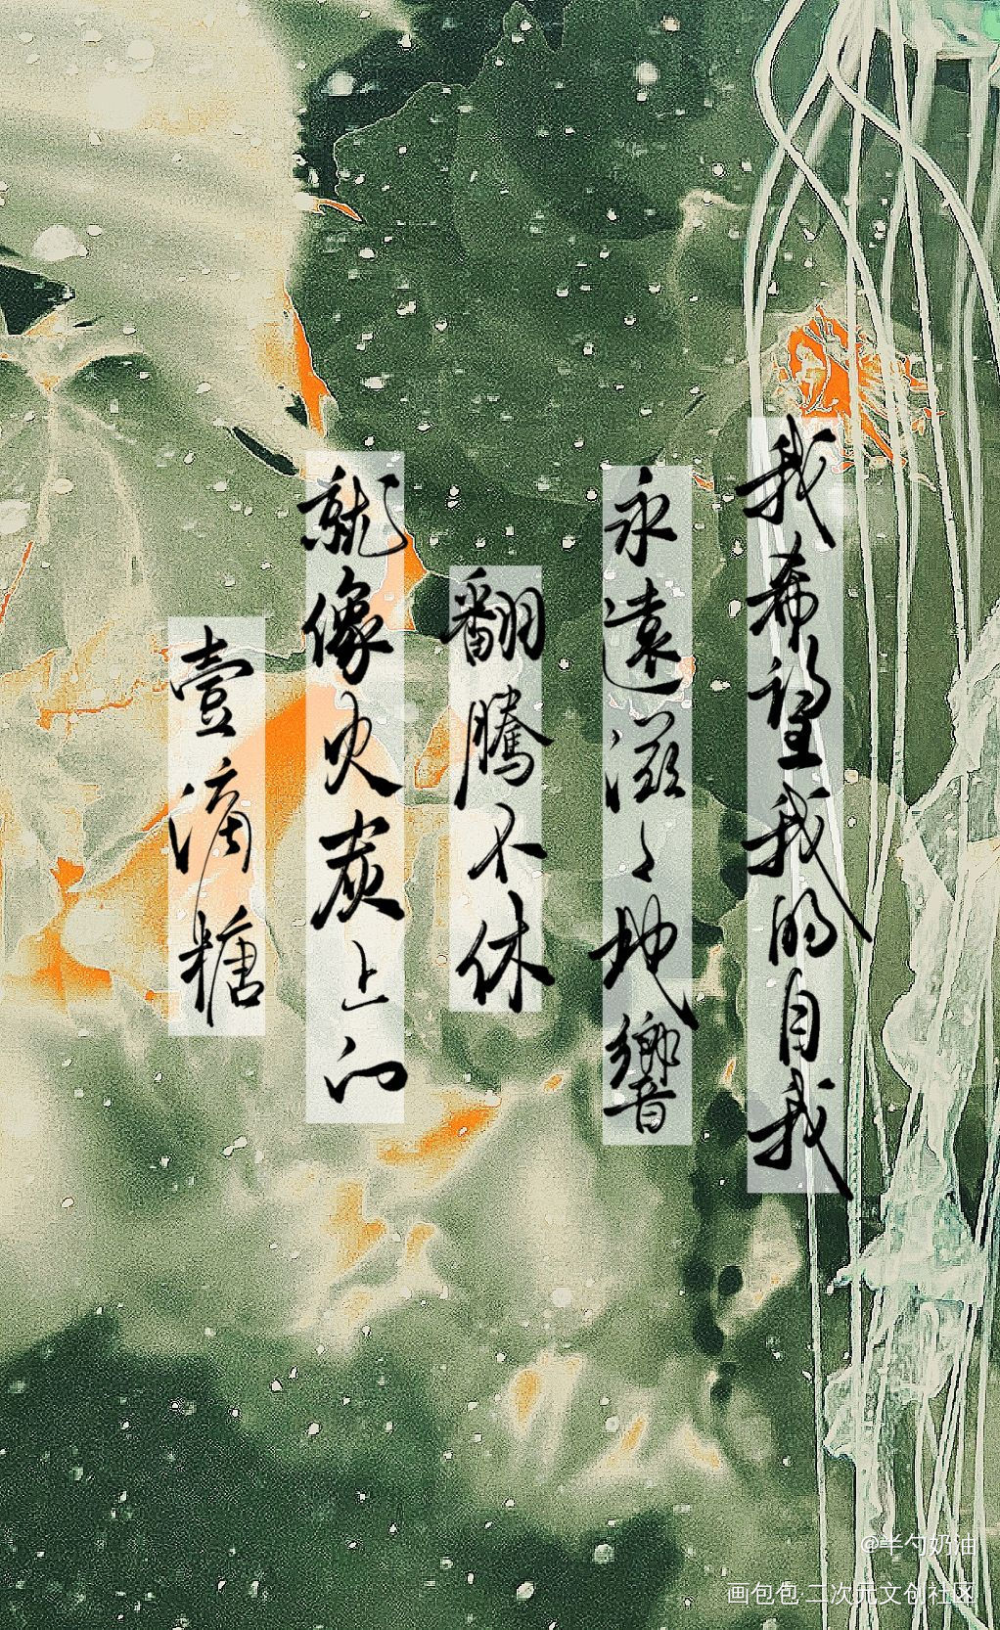 我希望我的自我
永遠滋々地響
翻騰不休
就像火炭上的
壹滴糖
@半勺奶油
画包包·二次元文创社区